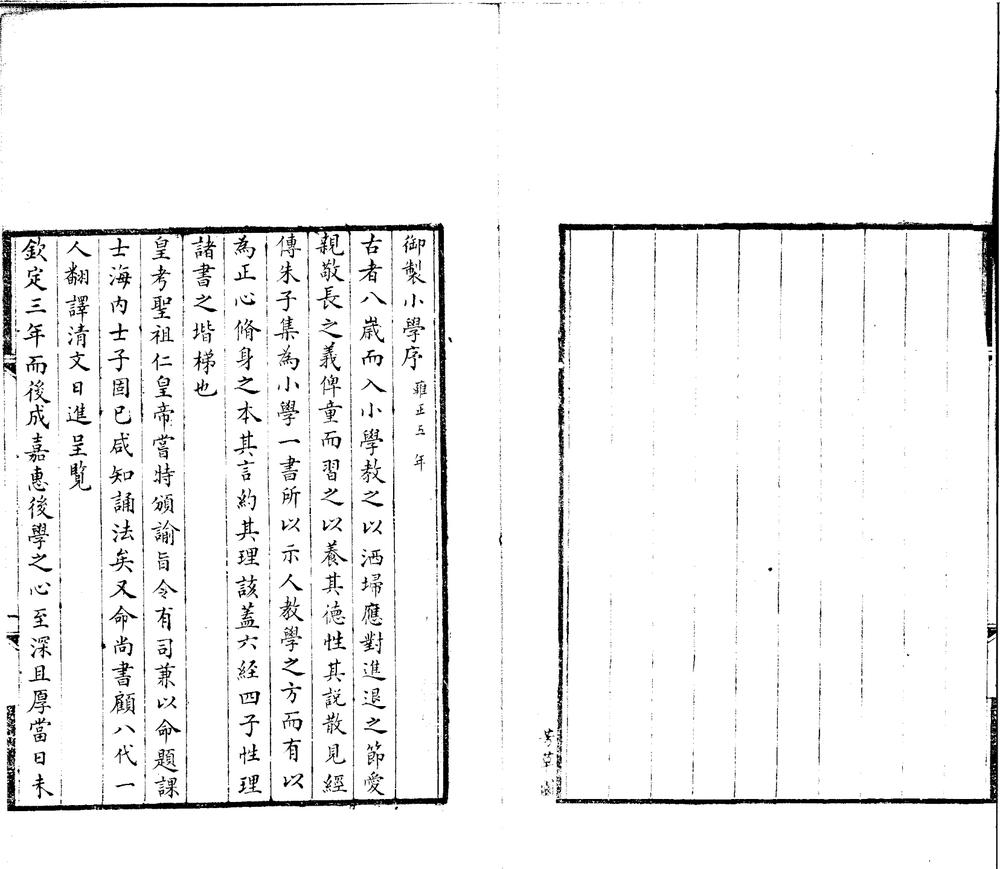 御製小學序 雍正五年
古者八歲而入小學教之以洒埽應對進退之節愛
親敬長之義俾童而習之以養其德性其說散見經
傳朱子集為小學一書所以示人教學之方而有以
為正心脩身之本其言約其理該蓋六經四子性理
諸書之堦梯也
皇考聖祖仁皇帝嘗特頒諭旨令有司兼以命題課
士海內士子固已咸知誦法矣又命尚書顧八代一
人繙譯清文日進呈覽
欽定三年而後成嘉惠後學之心至深且厚當日未
一